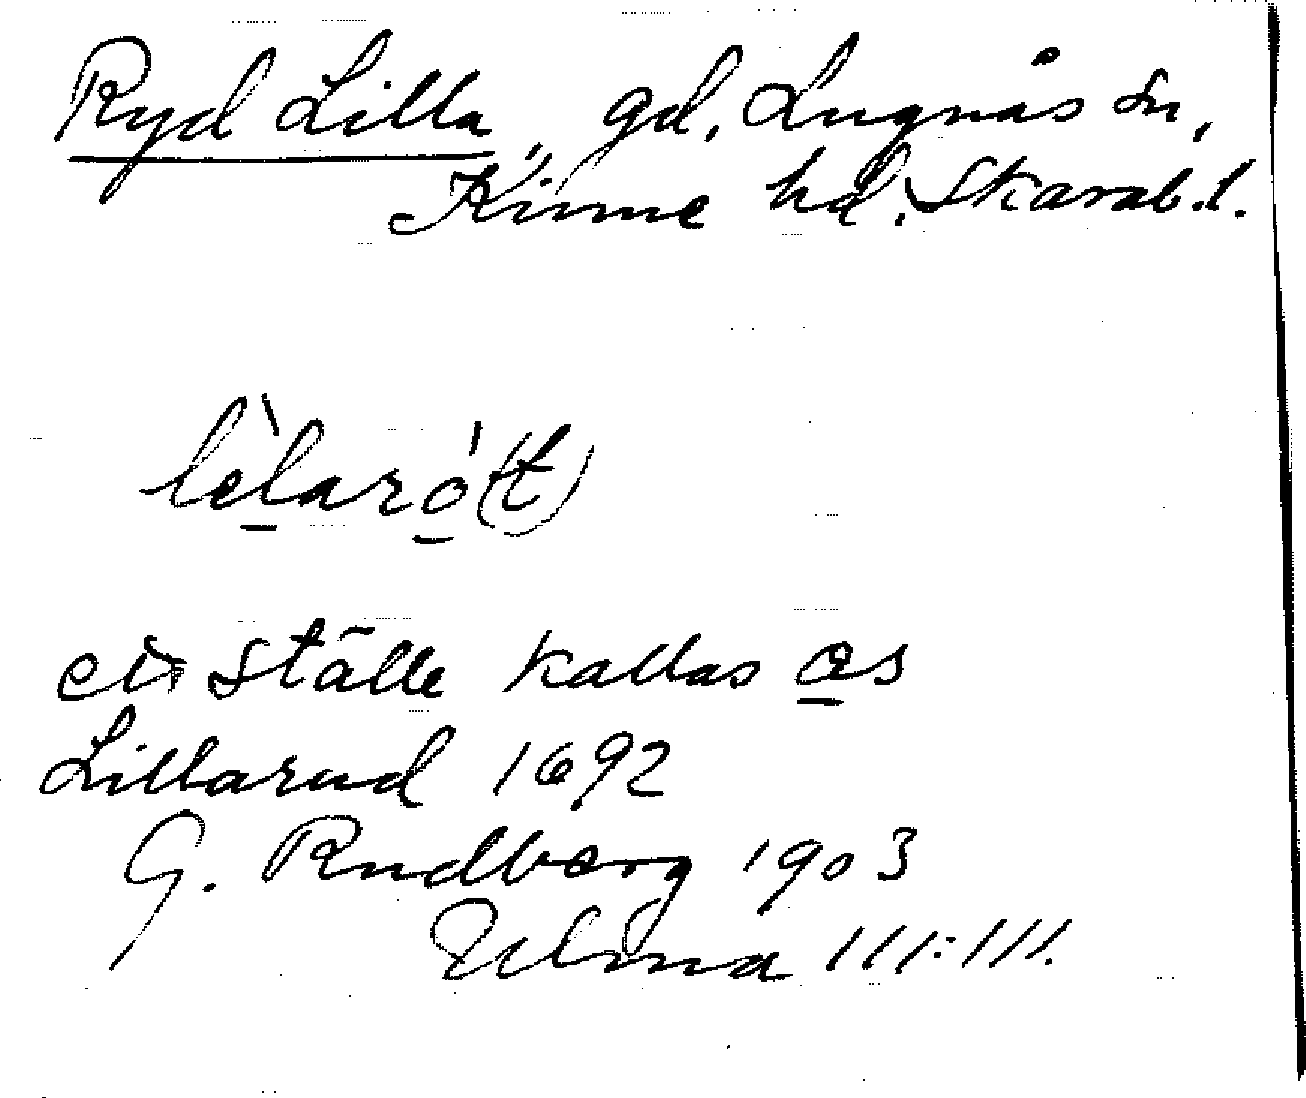 Ryd Lilla, gd, Lugnås sn,
Kinne hd, Skarab.l.
lèlaró(t)
ett ställe kallas as
Lillarud 1692
G. Rudberg 1903
Ulma 111:111.